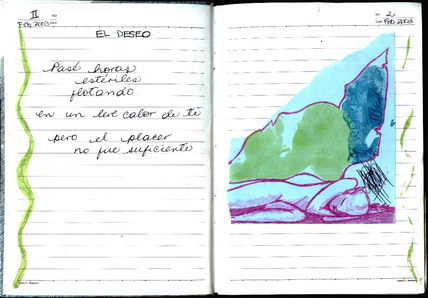 II
Feb 2003
EL DESEO
Pasé horas
estériles
flotando
en un leve calor de ti
pero el placer
no fue suficiente
2
Feb 2003